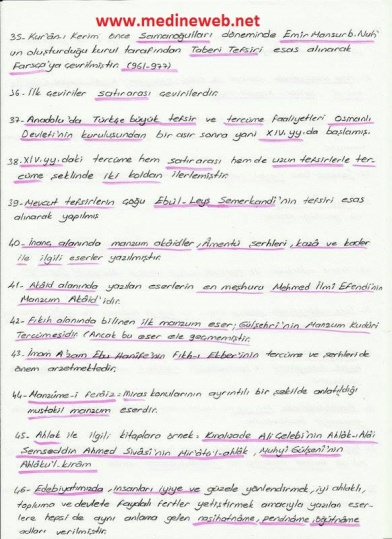 www.medineweb.net
35- Kur'ân-ı Kerim önce Samanoğulları döneminde Emir Mansur b. Nuh'
un oluşturduğu kurul tarafından Taberi Tefsiri esas alınarak
Farsça'ya çevrilmiştir. (961-977)
36- İlk çeviriler satırarası çevirilerdir.
37- Anadolu'da Türkçe büyük tefsir ve tercüme faaliyetleri Osmanlı
Devleti'nin kuruluşundan bir asır sonra yani XIV. yy.da başlamış.
38- XIV. yy.daki tercüme hem satırarası hem de uzun tefsirlerle ter-
cüme şeklinde iki koldan ilerlemiştir.
39- Mevcut tefsirlerin çoğu Ebu'l-Leys Semerkandi'nin tefsiri esas
alınarak yapılmış
40- İnanç alanında manzum akâidler, Âmentü şerhleri, kaza ve kader
ile ilgili eserler yazılmıştır.
41- Akâid alanında yazılan eserlerin en meşhuru Mehmed İlmî Efendi'nin
Manzum Akâid'idir.
42- Fıkıh alanında bilinen ilk manzum eser; Gülşehri'nin Manzum Kudûri
Tercümesidir. (Ancak bu eser ele geçmemiştir.
43- İmam A'zam Ebu Hanife'nin Fıkh-ı Ekber'inin tercüme ve şerhleri de
önem arzetmektedir.
44- Manzûme-i Ferâiz: Miras konularının ayrıntılı bir şekilde anlatıldığı
müstakil manzum eserdir.
45- Ahlak ile ilgili kitaplara örnek: Kınalızade Ali Çelebi'nin Ahlâk-ı Alâi
Şemseddin Ahmed Sivâsi'nin Mir'âtü'l-ahlâk, Muhyî Gülşenî'nin
Ahlâku'l-kirâm
46- Edebiyatımızda, insanları iyiye ve güzele yönlendirmek, iyi ahlaklı,
topluma ve devlete faydalı fertler yetiştirmek amacıyla yazılan eser-
lere hepsi de aynı anlama gelen nasihatnâme, pendnâme, öğütnâme
adları verilmiştir.